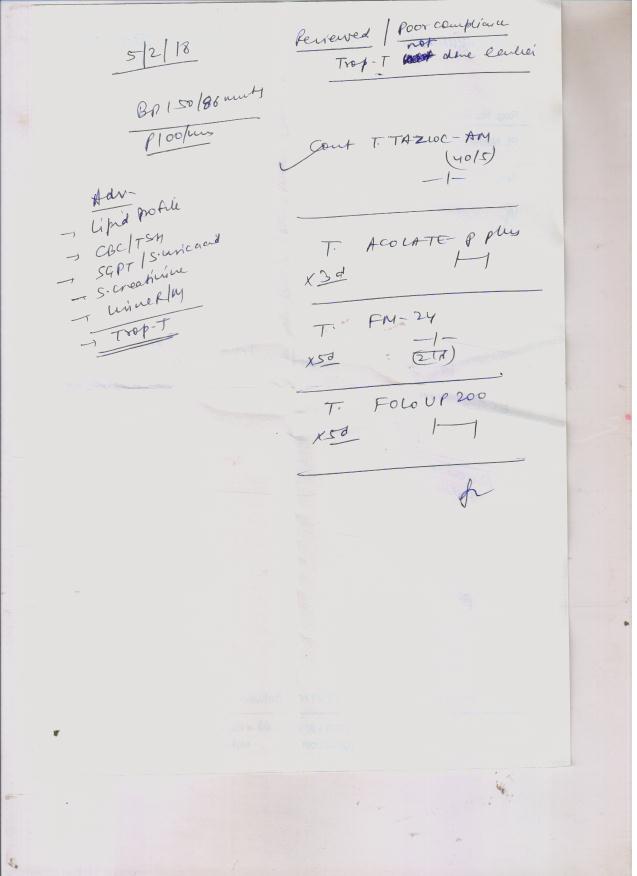 5/2/18
BP 150/86 mmHg
P 100/min
Adv-
→ Lipid profile
→ CBC/TSH
→ SGPT/S.uric acid
→ S.creatinine
→ Urine R/M
→ Trop-T
Reviewed / Poor compliance
not
Trop-T done earlier
Cont T. TAZLOC-AM
(40/5)
T. ACOLATE-P plus
x3d
T. FM-24
x5d
T. FOLOUP 200
x5d